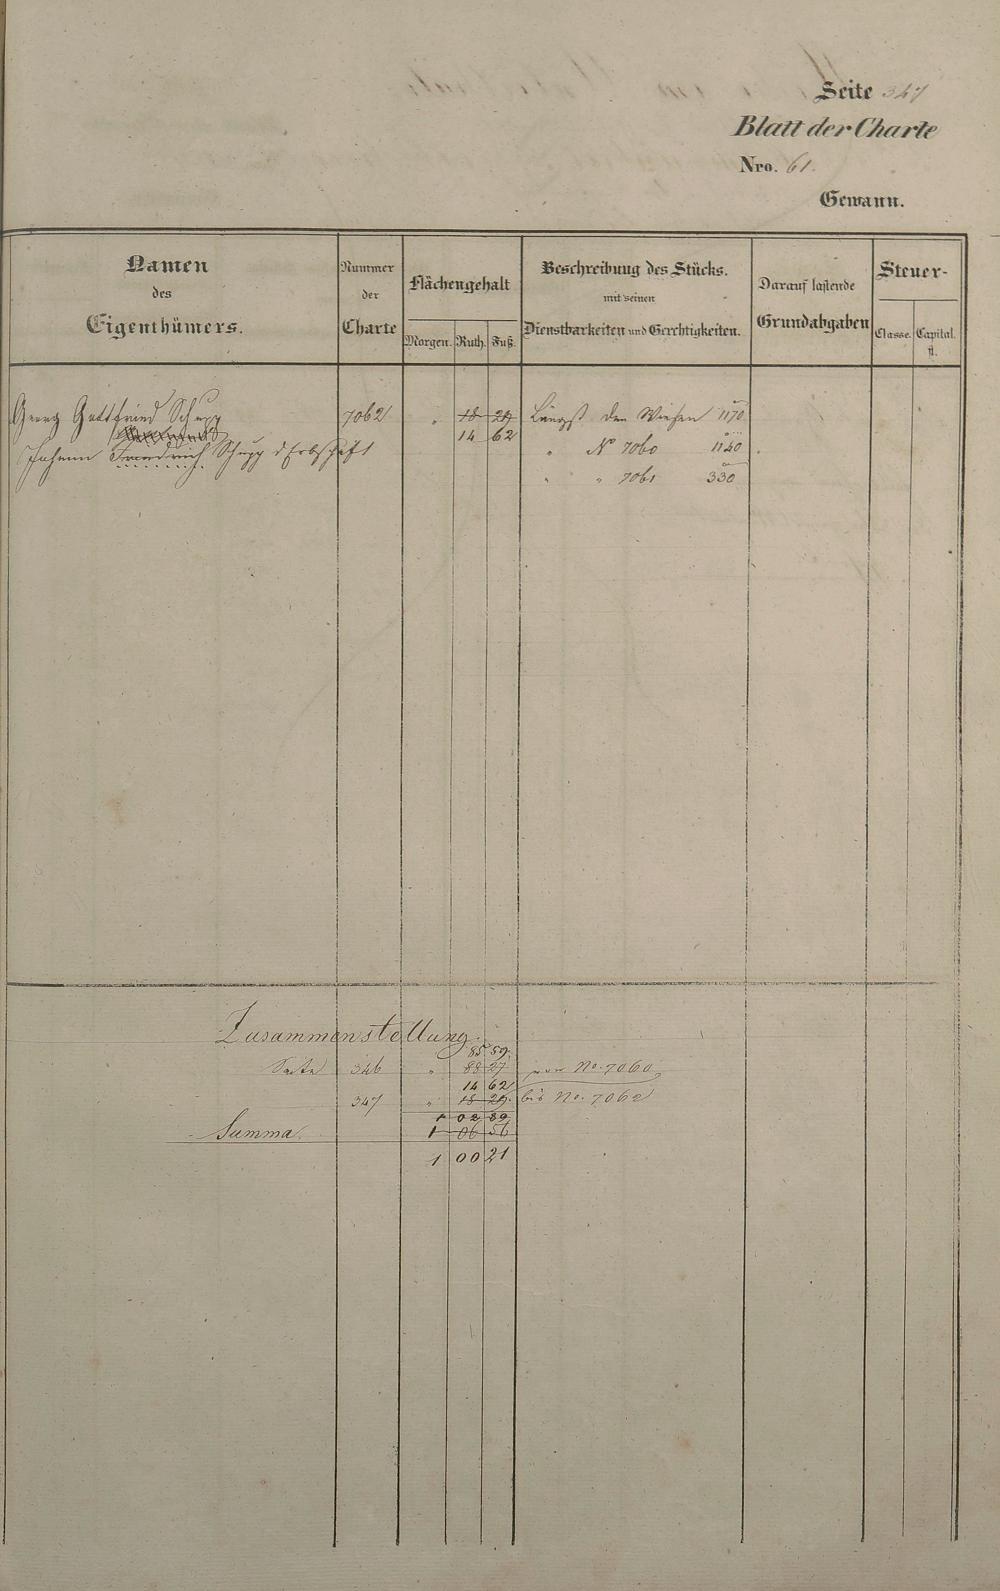 Seite 347
Blatt der Charte
Nro. 61.
Gewann.
Namen des Eigenthümers.
Nummer der Charte
Flächengehalt
Morgen. Ruth. Fuß.
Beschreibung des Stücks. mit seinen Dienstbarkeiten und Gerechtigkeiten.
Darauf lastende Grundabgaben
Steuer-
Classe. Capital. fl.
Georg Gottfried Schupp 7062 " 18 29 Längst den Wiesen 1170
14 62
Johann Friedrich Schupp Erbschaft " No 7060 1120
" " 7061 330
Zusammenstellung.
85 59.
Seite 346 " 88 27 von No. 7060
14 62
347 " 18 29. bis No. 7062
1 02 89
Summa. 1 06 56
1 00 21